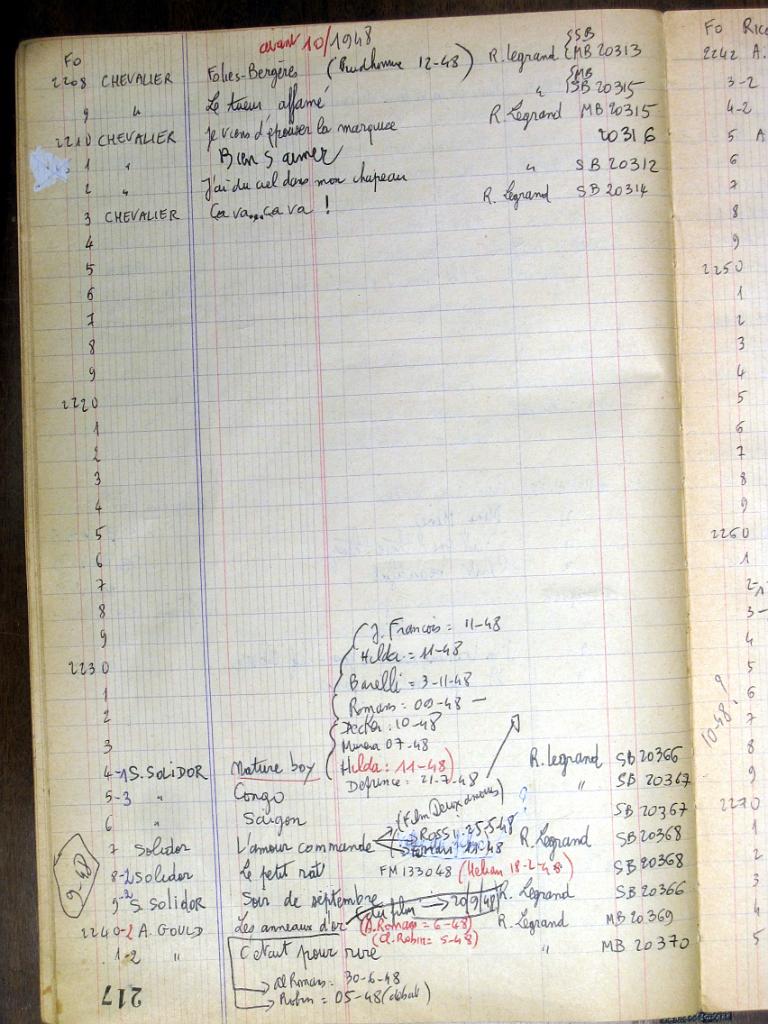 Fo avant 10/1948 {SB
2208 CHEVALIER Folies-Bergères (Prudhomme 12-48) R. Legrand {MB 20313
9 " Le tueur affamé " {MB SB 20315
2210 CHEVALIER Je viens d'épouser la marquise R. Legrand MB 20315
1 " Bien s'aimer 20316
2 " J'ai du ciel dans mon chapeau " SB 20312
3 CHEVALIER Ça va...ça va ! R. Legrand SB 20314
4
5
6
7
8
9
2220
1
2
3
4
5
6
7
8
9 J. François = 11-48
2230 Hilda = 11-48
1 Barelli = 3-11-48
2 Romans = 09-48 -
Decker = 10-48
3 Murena 07-48
4-1 S. SOLIDOR Nature boy Hilda : 11-48) R. Legrand SB 20366
Defrince = 21-7-48
5-3 " Congo " SB 20367
6 " Saïgon (Film Deux amours) ? SB 20367
7 Solidor L'amour commande Rossi : 25-5-48 R. Legrand SB 20368
11-48
8-2 Solidor Le petit rat FM 133048 (Helian 18-2-48) SB 20368
9-2 S. SOLIDOR Soir de septembre R. Legrand SB 20366
du film → 20/9/48
2240-2 A. GOULD Les anneaux d'or (A. Romans = 6-48) R. Legrand MB 20369
(A. Robin = 5-48)
1-2 " C'était pour rire " MB 20370
al Romans : 30-6-48
Robin = 05-48 (début)
9-48
217
Fo
2242 A.
3-2
4-2
5 A
6
7
8
9
2250
1
2
3
4
5
6
7
8
9
2260
1
2
3-
4
5
6
7
8
9
10-48 ?
2270
1
2
3
4
5